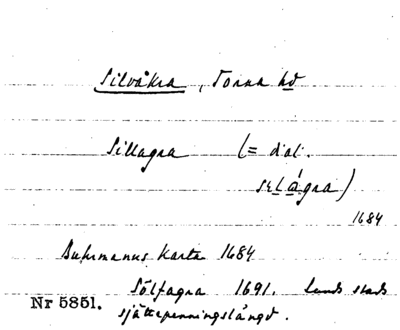 Silvåkra, Torna hd
Sillagra (= dial.
selågra)
1684
Buhrmanns Karta 1684
Sölfagra 1691. Lunds stads
Nr 5851. sjättepenningslängd.